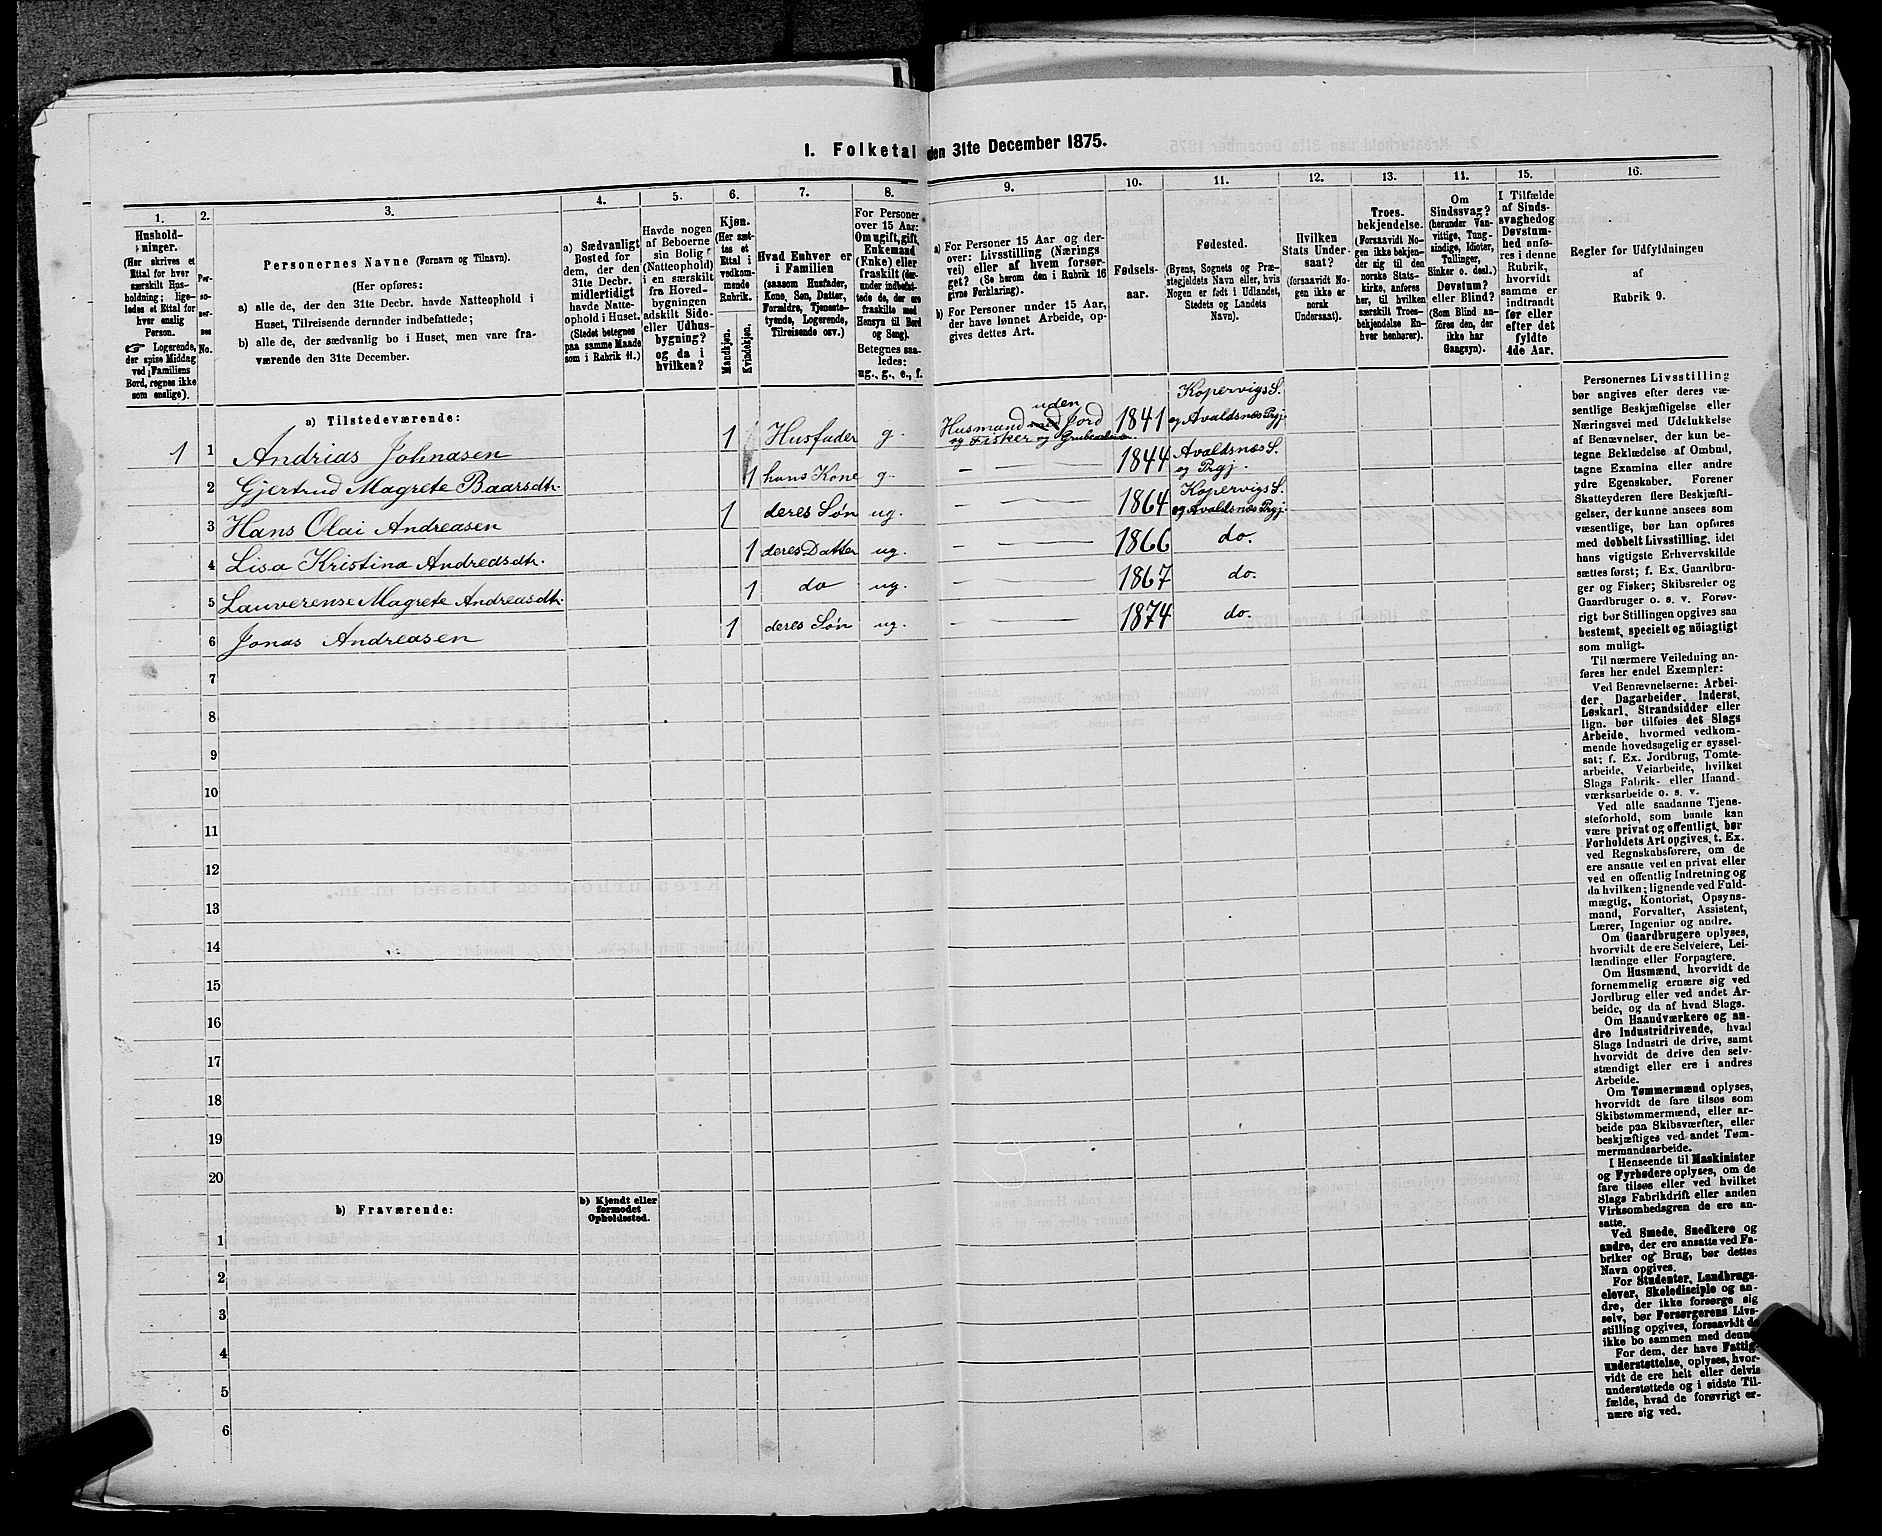 I. Folketal den 31te December 1875.
1. 2. 3. 4. 5. 6. 7. 8. 9. 10. 11. 12. 13. 11. 15. 16.
Hushold-
ninger.
(Her skrives et
Ettal for hver
særskilt Hus-
holdning; lige-
ledes et Ettal for
hver enslig
Person.
☞ Logerende,
der spise Middag
ved Familiens
Bord, regnes ikke
som enslige).
Per-
so-
ner-
nes
No.
Personernes Navne (Fornavn og Tilnavn).
(Her opføres:
a) alle de, der den 31te Decbr. havde Natteophold i
Huset, Tilreisende derunder indbefattede;
b) alle de, der sædvanlig bo i Huset, men vare fra-
værende den 31te December.
a) Sædvanligt
Bosted for
dem, der den
31te Decbr.
midlertidigt
havde Natte-
ophold i Huset.
(Stedet betegnes
paa samme Maade
som i Rubrik 11.)
Havde nogen
af Beboerne
sin Bolig
(Natteophold)
i en særskilt
fra Hoved-
bygningen
adskilt Side-
eller Udhus-
bygning?
og da i
hvilken?
Kjøn.
(Her sæt-
tes et
Ettal i
vedkom-
mende
Rubrik.
Mandkjøn.
Kvindekjøn.
Hvad Enhver er
i Familien
(saasom Husfader,
Kone, Søn, Datter,
Forældre, Tjeneste-
tyende, Logerende,
Tilreisende osv.)
For Personer
over 15 Aar:
Om ugift, gift,
Enkemand
(Enke) eller
fraskilt (der-
under indbefat-
tede de, der ere
fraskilte med
Hensyn til Bord
og Seng).
Betegnes saa-
ledes:
ug., g., e., f.
a) For Personer 15 Aar og der-
over: Livsstilling (Nærings-
vei) eller af hvem forsør-
get? (Se herom den i Rubrik 16
givne Forklaring).
b) For Personer under 15 Aar,
der have lønnet Arbeide, op-
gives dettes Art.
Fødsels-
aar.
Fødested.
(Byens, Sognets og Præ-
stegjeldets Navn eller, hvis
Nogen er født i Udlandet,
Stedets og Landets
Navn).
Hvilken
Stats Under-
saat?
(forsaavidt No-
gen ikke er
norsk
Undersaat).
Troes-
bekjendelse.
(Forsaavidt No-
gen ikke bekjen-
der sig til den
norske Stats-
kirke, anføres
her, til hvilken
særskilt Troes-
bekjendelse En-
hver henhører).
Om
Sindssvag?
(herunder Van-
vittige, Tung-
sindige, Idioter,
Tullinger,
Sinker o. desl.)
Døvstum?
eller Blind?
(Som Blind an-
føres den, der
ikke har
Gangsyn).
I Tilfælde
af Sinds-
svaghed og
Døvstum-
hed anfø-
res i denne
Rubrik,
hvorvidt
samme er
indtraadt
før eller
efter det
fyldte
4de Aar.
Regler for Udfyldningen
af
Rubrik 9.
a) Tilstedeværende:
1 1 Andrias Johnasen 1 Husfader g. Husmand med uden Jord og Fisker og Grubearbeider 1841 Kopervigs S. og Avaldsnæs Prgj.
2 Gjertrud Magrete Baarsdtr. 1 hans Kone g. — — 1844 Avaldsnæs S. og Prgj.
3 Hans Olai Andreasen 1 deres Søn ug. — — 1864 Kopervigs S. og Avaldsnæs Prgj.
4 Lisa Kristina Andreasdtr. 1 deres Datter ug. — — 1866 do.
5 Lauverense Magrete Andreasdtr. 1 do ug. — — 1867 do.
6 Jonas Andreasen 1 deres Søn ug. — — 1874 do.
7
8
9
10
11
12
13
14
15
16
17
18
19
20
b) Fraværende:
b) Kjendt eller
formodet
Opholdssted.
1
2
3
4
5
6
Personernes Livsstilling
bør angives efter deres væ-
sentlige Beskjæftigelse eller
Næringsvei med Udelukkelse
af Benævnelser, der kun be-
tegne Beklædelse af Ombud,
tagne Examina eller andre
ydre Egenskaber. Forener
Skatteyderen flere Beskjæfti-
gelser, der kunne ansees som
væsentlige, bør han opføres
med dobbelt Livsstilling, idet
hans vigtigste Erhvervskilde
sættes først; f. Ex. Gaardbru-
ger og Fisker; Skibsreder og
Gaardbruger o. s. v. Forøv-
rigt bør Stillingen opgives saa
bestemt, specielt og nöiagtigt
som muligt.
Til nærmere Veiledning an-
føres her endel Exempler:
Ved Benævnelserne: Arbei-
der, Dagarbeider, Inderst,
Løskarl, Strandsidder eller
lign. bør tilføies det Slags
Arbeide, hvormed vedkom-
mende hovedsagelig er syssel-
sat; f. Ex. Jordbrug, Tomte-
arbeide, Veiarbeide, hvilket
Slags Fabrik- eller Haand-
værksarbeide o. s. v.
Ved alle saadanne Tjene-
steforhold, som baade kan
være privat og offentligt, bør
Forholdets Art opgives, t. Ex.
ved Regnskabsførere, om de
ere ansatte ved en privat eller
ved en offentlig Indretning og
da hvilken; lignende ved Fuld-
mægtig, Kontorist, Opsyns-
mand, Forvalter, Assistent,
Lærer, Ingeniør og andre.
Om Gaardbrugere oplyses,
hvorvidt de ere Selveiere, Lei-
lændinge eller Forpagtere.
Om Husmænd, hvorvidt de
fornemmelig ernære sig ved
Jordbrug eller ved andet Ar-
beide, og da af hvad Slags.
Om Haandværkere og an-
dre Industridrivende, hvad
Slags Industri de drive, samt
hvorvidt de drive den selv-
stændigt eller ere i andres
Arbeide.
Om Tømmermænd oplyses,
hvorvidt de fare tilsøs som
Skibstømmermænd, eller ar-
beide paa Skibsværfter, eller
beskjæftiges ved andet Tøm-
mermandsarbeide.
I Henseende til Maskinister
og Fyrbødere oplyses, om de
fare tilsøs eller ved hvilket
Slags Fabrikdrift eller anden
Virksomhedsgren de ere an-
satte.
Ved Smede, Snedkere og
andre, der ere ansatte ved Fa-
briker og Brug, bør dettes
Navn opgives.
For Studenter, Landbrugs-
elever, Skoledisciple og an-
dre, der ikke forsørge sig
selv, bør Forsørgerens Livs-
stilling opgives, forsaavidt de
ikke bo sammen med denne.
For dem, der have Fattig-
understøttelse, oplyses, hvor-
vidt de ere helt eller delvis
understøttede og i sidste Til-
fælde, hvad de forøvrigt er-
nære sig ved.